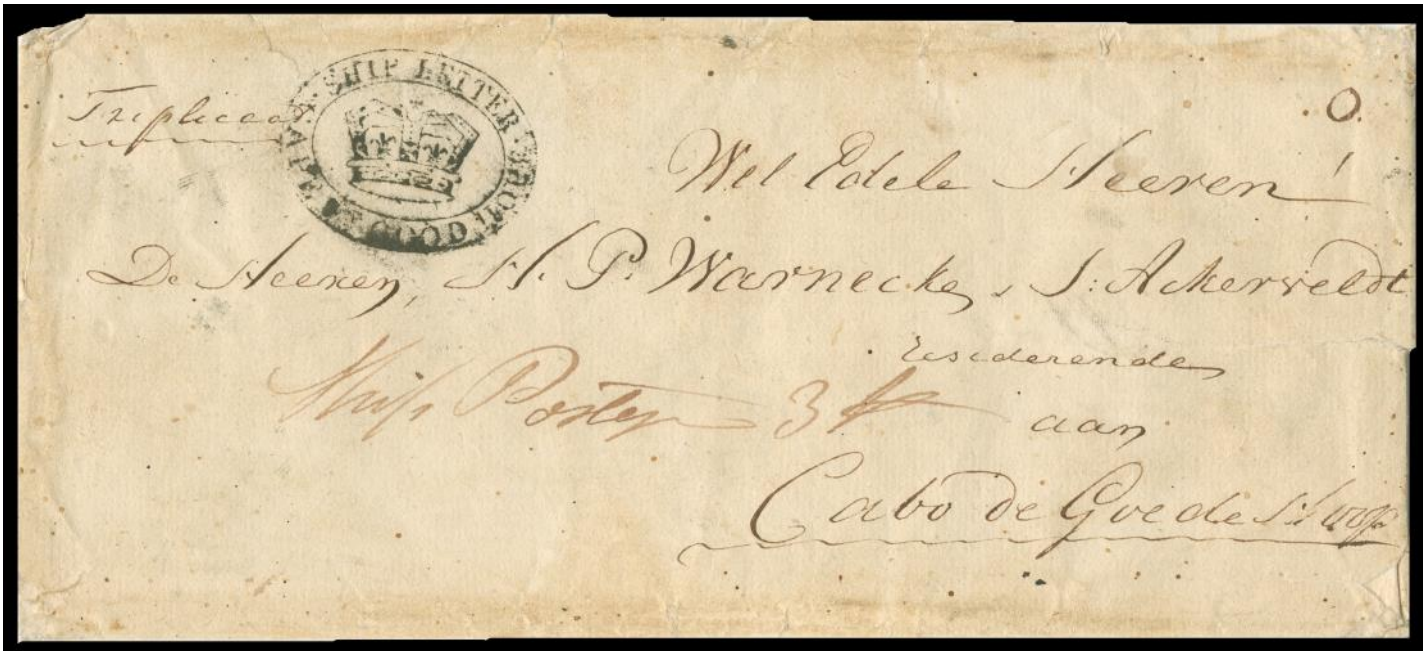 Triplicaat.
SHIP LETTER · FROM · CAPE OF GOOD
O.
Wel Edele Heeren!
De Heeren, H. P. Warnecke, J: Ackerveldt
residerende
aan
Ship Postage 3
Cabo de Goede Hoop